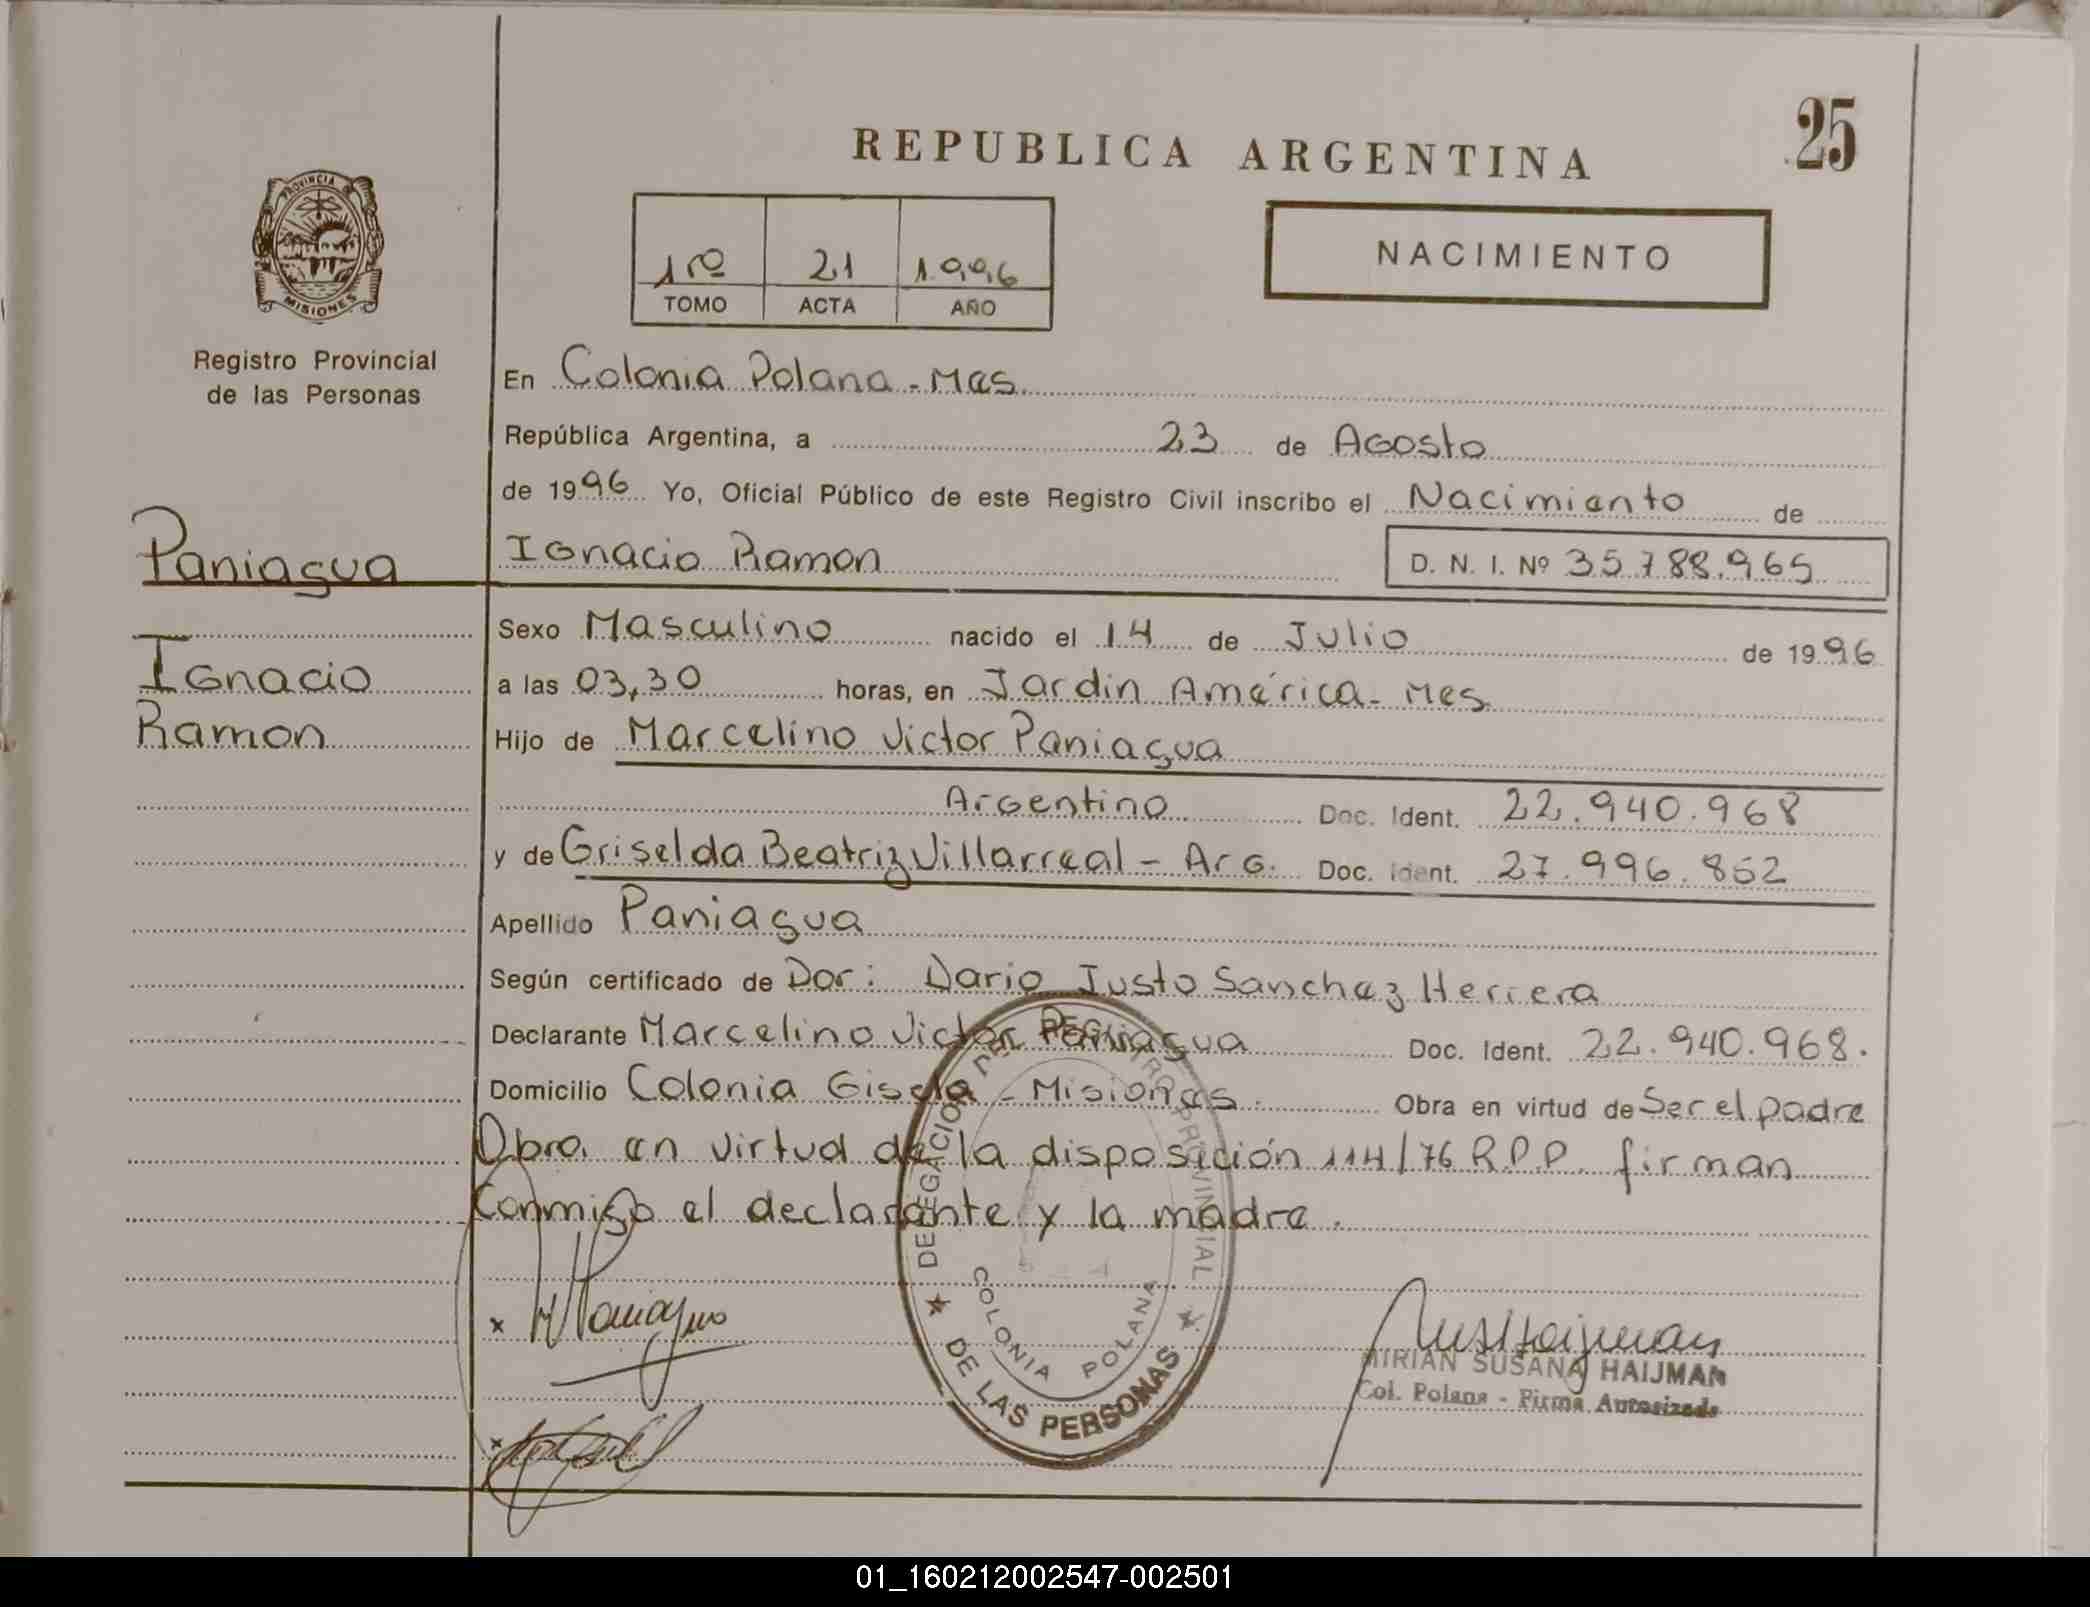 25
REPUBLICA ARGENTINA
PROVINCIA
MISIONES
1ro 21 1.996
TOMO ACTA AÑO
NACIMIENTO
Registro Provincial
de las Personas
En Colonia Polana - Mes.
República Argentina, a 23 de Agosto
de 1996 Yo, Oficial Público de este Registro Civil inscribo el Nacimiento de
Paniagua
Ignacio Ramon D. N. I. Nº 35.788.965
Sexo Masculino nacido el 14 de Julio de 1996
Ignacio
a las 03,30 horas, en Jardin América - Mes.
Ramon
Hijo de Marcelino Victor Paniagua
Argentino Doc. Ident. 22.940.968
y de Griselda Beatriz Villarreal - Arg. Doc. Ident. 27.996.852
Apellido Paniagua
Según certificado de Dor: Dario Justo Sanchez Herrera
Declarante Marcelino Victor Paniagua Doc. Ident. 22.940.968.
Domicilio Colonia Gisela - Misiones. Obra en virtud de Ser el padre
Obra en virtud de la disposición 114/76 R.P.P. firman
Conmigo el declarante y la madre.
DELEGACION DEL REGISTRO PROVINCIAL
★ DE LAS PERSONAS ★
COLONIA POLANA
x Paniagua
MIRIAN SUSANA HAIJMAN
Col. Polana - Firma Autorizada
x
01_160212002547-002501